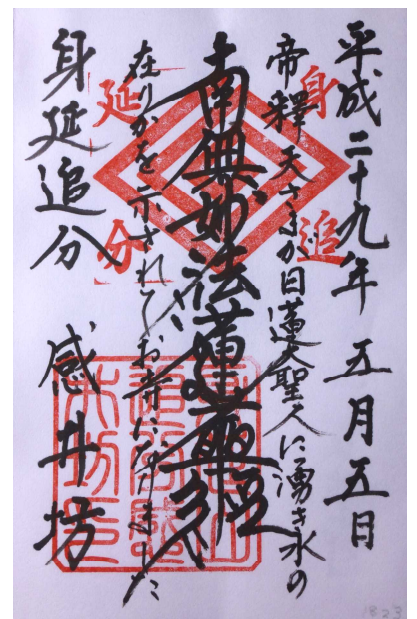 平成二十九年 五月五日
帝釋天さまが日蓮大聖人に湧き水の
南無妙法蓮華経
在りかを示されてお寺になりました
身延追分 感井坊
身
追
延
分
1823